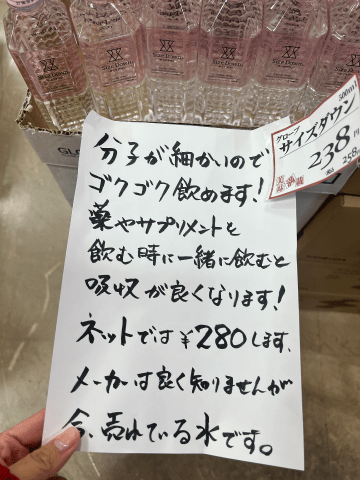 Size Down
Size Down
Size Down
Size Down
500ml
グローブ
サイズダウン
238円
税込 258
GLO
分子が細かいので
ゴクゴク飲めます!
薬やサプリメントを
飲む時に一緒に飲むと
吸収が良くなります!
ネットでは¥280します、
メーカーは良く知りませんが
今、売れている水です。